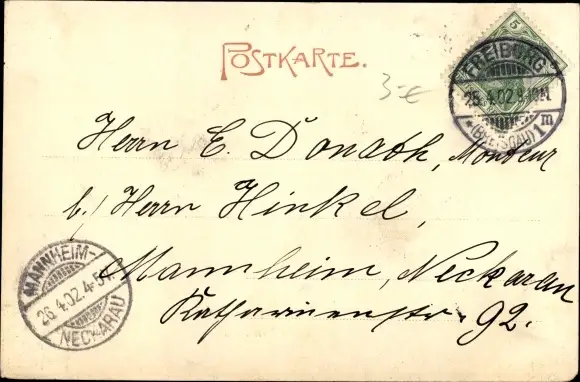 POSTKARTE.
5
FREIBURG
25.4.02.9-10N.
*(BREISGAU) 1m
3-€
Herrn E. Donath, Monteur
b./Herrn Hinkel,
Mannheim, Neckarau
Katharinenstr. 92.
MANNHEIM-
26.4.02.4-5N.
NECKARAU